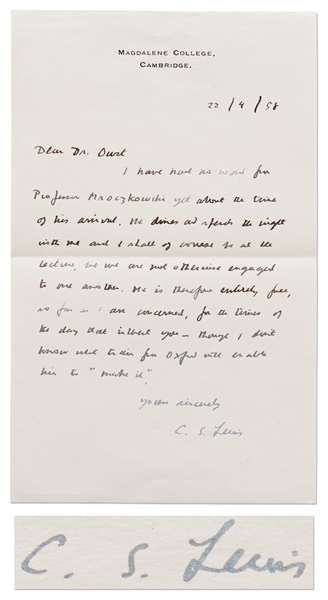 MAGDALENE COLLEGE,
CAMBRIDGE.
22/4/58
Dear Dr. Ourst
I have had no word from
Professor Mroczkowski yet about the time
of his arrival. He dines and spends the night
with me and I shall of course be at the
lecture, but we are not otherwise engaged
to one another. He is therefore entirely free,
so far as I am concerned, for the times of
the day that interest you – though I don't
know what train from Oxford will enable
him to "make it".
Yours sincerely
C. S. Lewis
C. S. Lewis